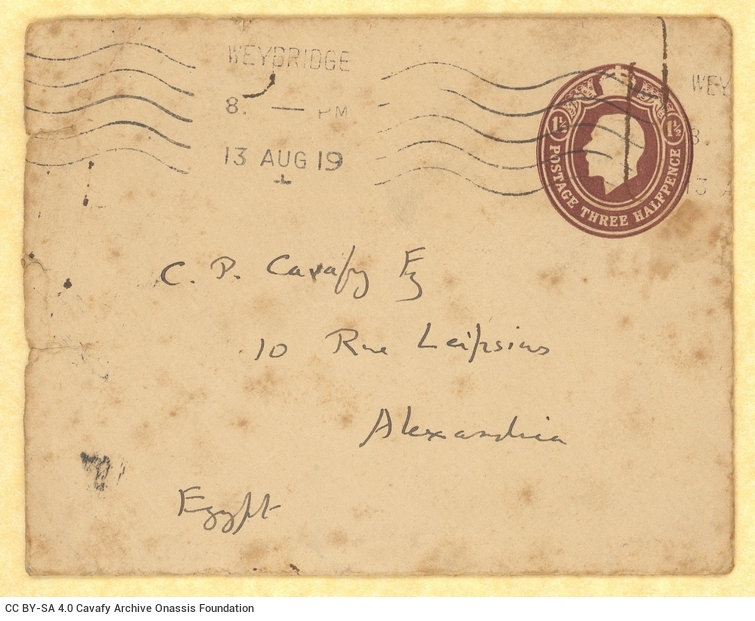 WEYBRIDGE
8. — PM
13 AUG 19
WEY
8.
13 A
1½ 1½
POSTAGE THREE HALFPENCE
C. P. Cavafy Esq
10 Rue Leipsius
Alexandria
Egypt
CC BY-SA 4.0 Cavafy Archive Onassis Foundation